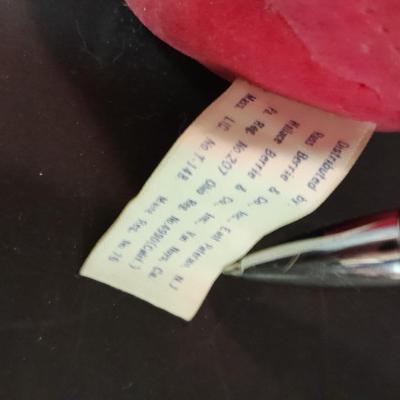 Distributed by
Russ Berrie & Co, Inc, East Paterson N J
Wallace Berrie & Co, Inc, Van Nuys, Ca.
Pa Reg. No.207 Ohio Reg
Mass. LIC No T-148 Maine Reg. No